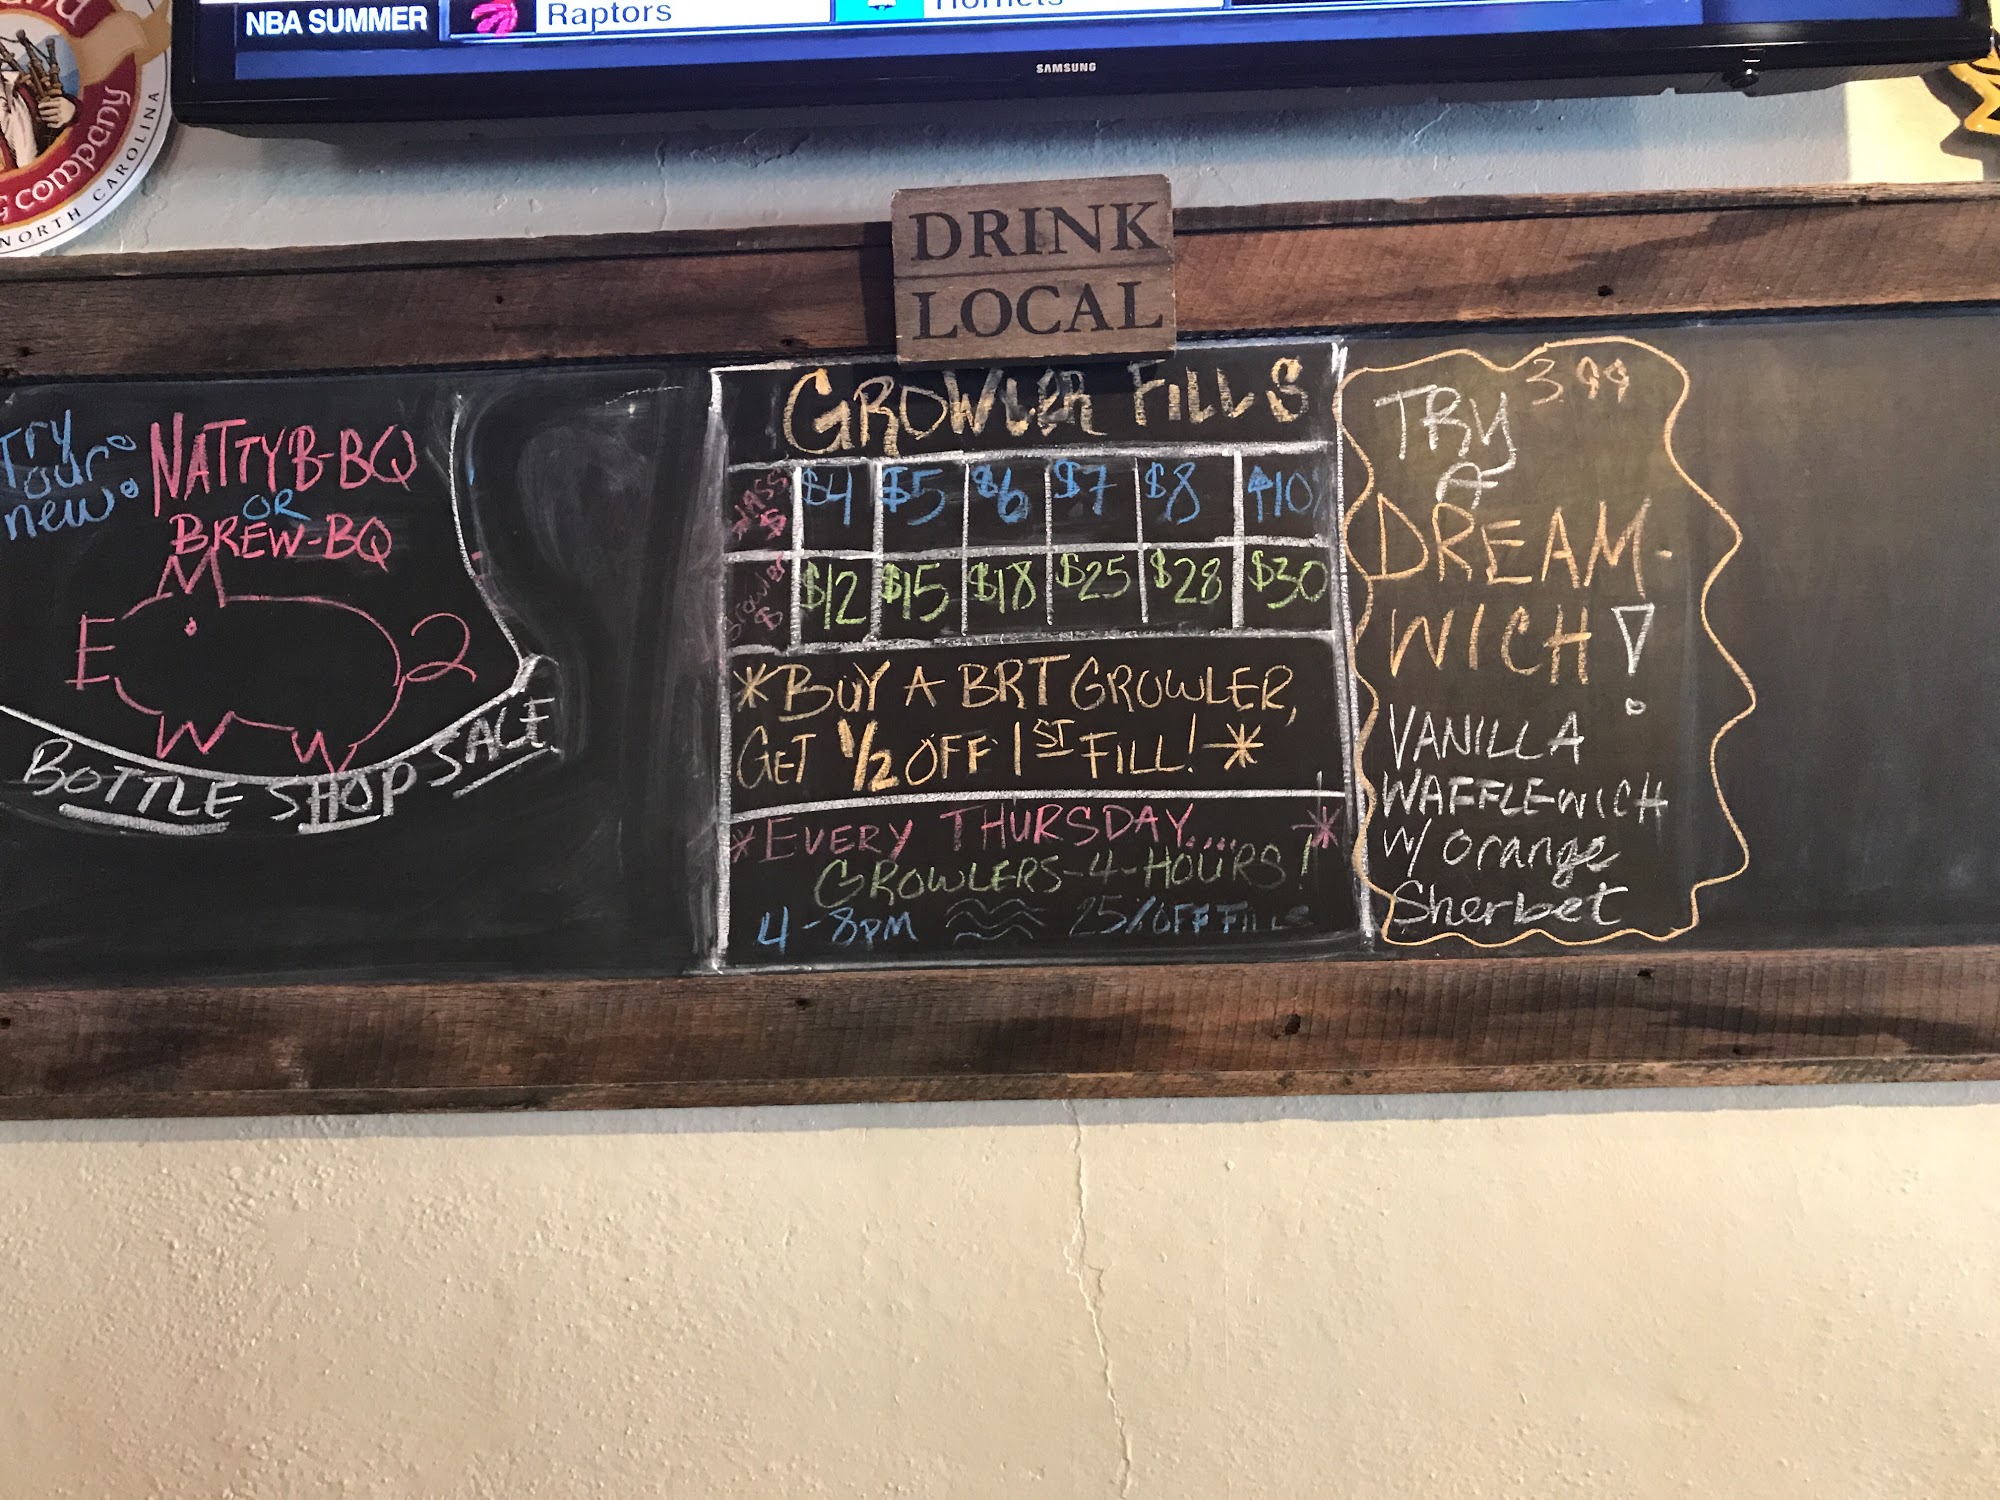 NBA SUMMER
Raptors
Hornets
SAMSUNG
Company
NORTH CAROLINA
DRINK
LOCAL
Try
our
new
NATTY'B-BQ
OR
BREW-BQ
E M 2
W W
BOTTLE SHOP SALE
GROWLER FILLS
glass $ $4 $5 $6 $7 $8 ↑10
growler $ $12 $15 $18 $25 $28 $30
*BUY A BRT GROWLER,
GET 1/2 OFF 1ST FILL! *
*EVERY THURSDAY.... *
GROWLERS-4-HOURS!
4-8PM 25% OFF FILLS
TRY 3.99
A
DREAM-
WICH!
VANILLA
WAFFLEWICH
W/ orange
Sherbet